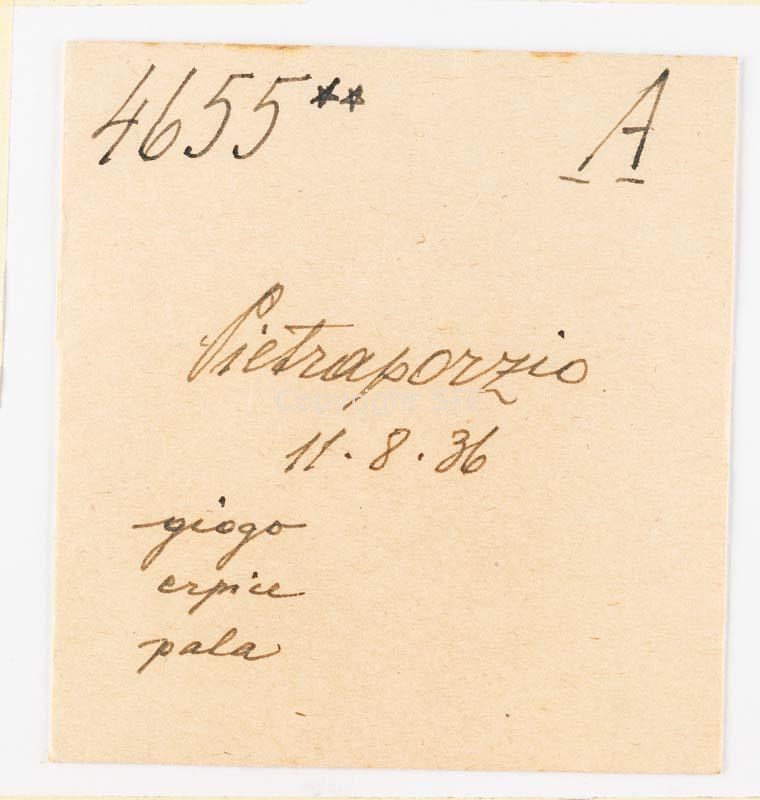 4655** A
Pietraporzio
11.8.36
giogo
erpice
pala